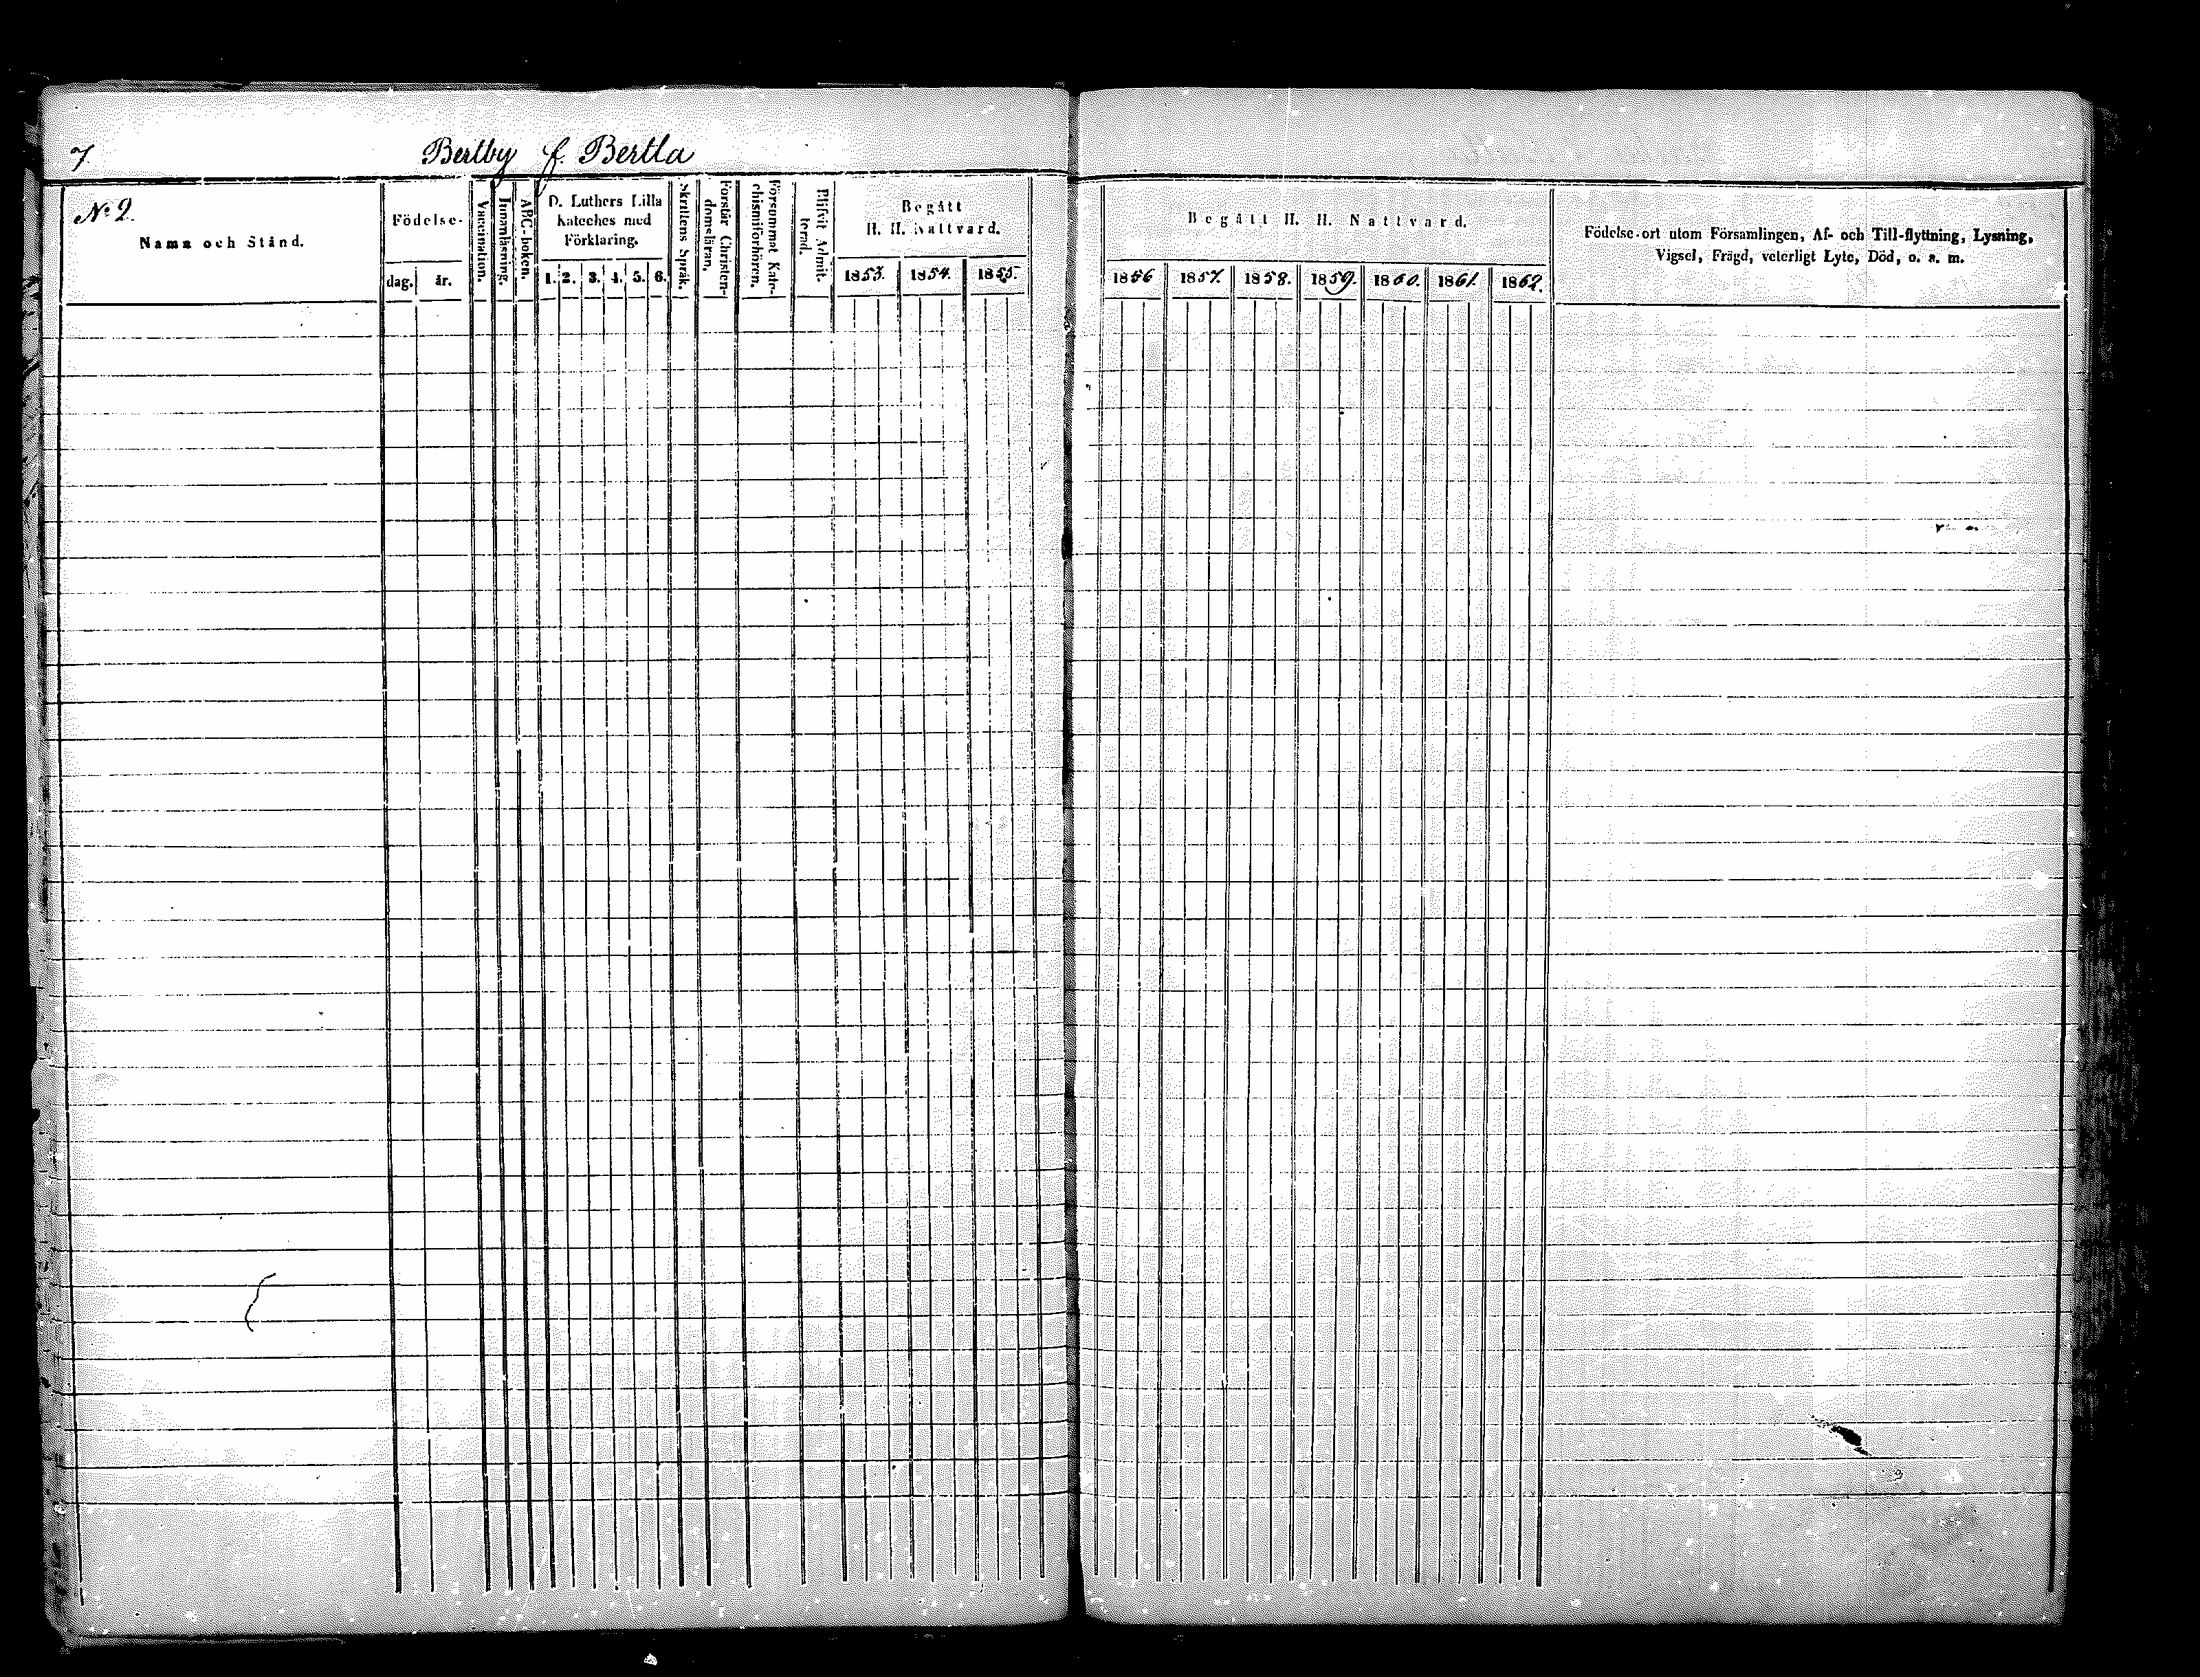 7 Bertby f. Bertla
No 2.
Namn och Stånd.
Födelse-
dag. år.
Vaccination.
Innanläsning.
ABC-boken.
D. Luthers Lilla
Kateches med
Förklaring.
1. 2. 3. 4. 5. 6.
Skriftens Språk.
Förstår Christen-
domsläran.
Försummat Kate-
chismiförhören.
Blifvit Admit-
terad.
Begått
H. H. Nattvard.
1853. 1854. 1855.
Begått H. H. Nattvard.
1856 1857. 1858. 1859. 1860. 1861. 1862.
Födelse-ort utom Församlingen, Af- och Till-flyttning, Lysning,
Vigsel, Frägd, veterligt Lyte, Död, o. s. m.